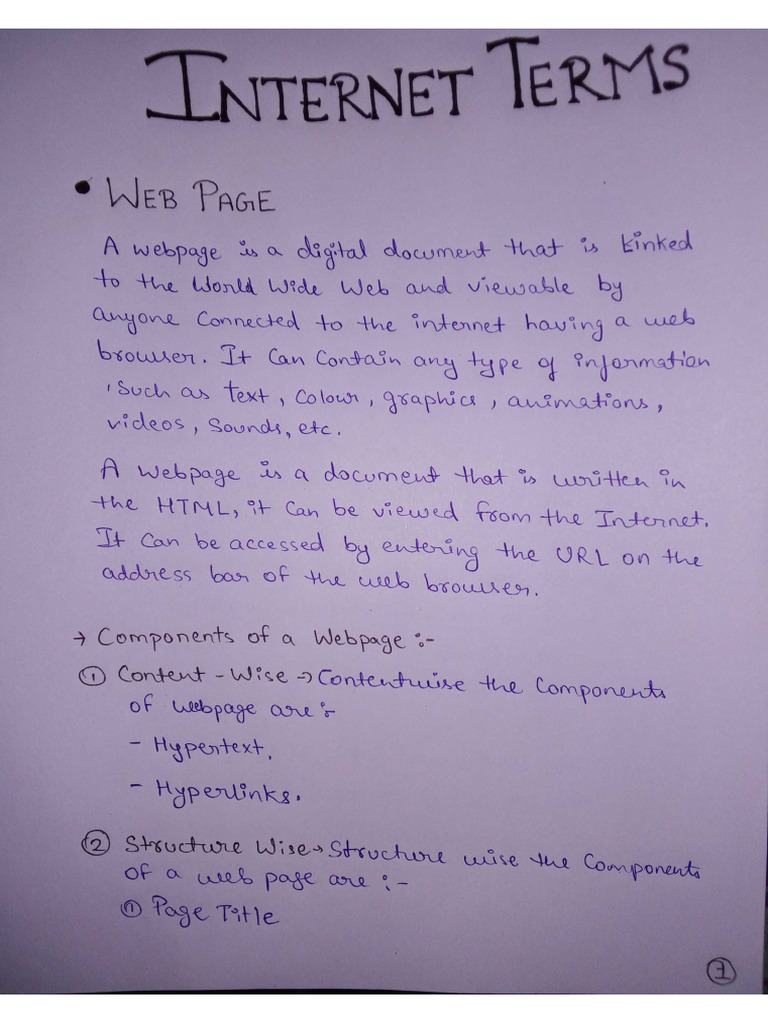 INTERNET TERMS
• WEB PAGE
A webpage is a digital document that is linked
to the World Wide Web and viewable by
anyone connected to the internet having a web
browser. It can contain any type of information
, such as text, colour, graphics, animations,
videos, sounds, etc.
A webpage is a document that is written in
the HTML, it can be viewed from the Internet.
It can be accessed by entering the URL on the
address bar of the web browser.
→ Components of a Webpage :-
① Content - Wise → Contentwise the components
of webpage are :-
- Hypertext.
- Hyperlinks.
② Structure Wise → Structure wise the components
of a web page are :-
① Page Title
①